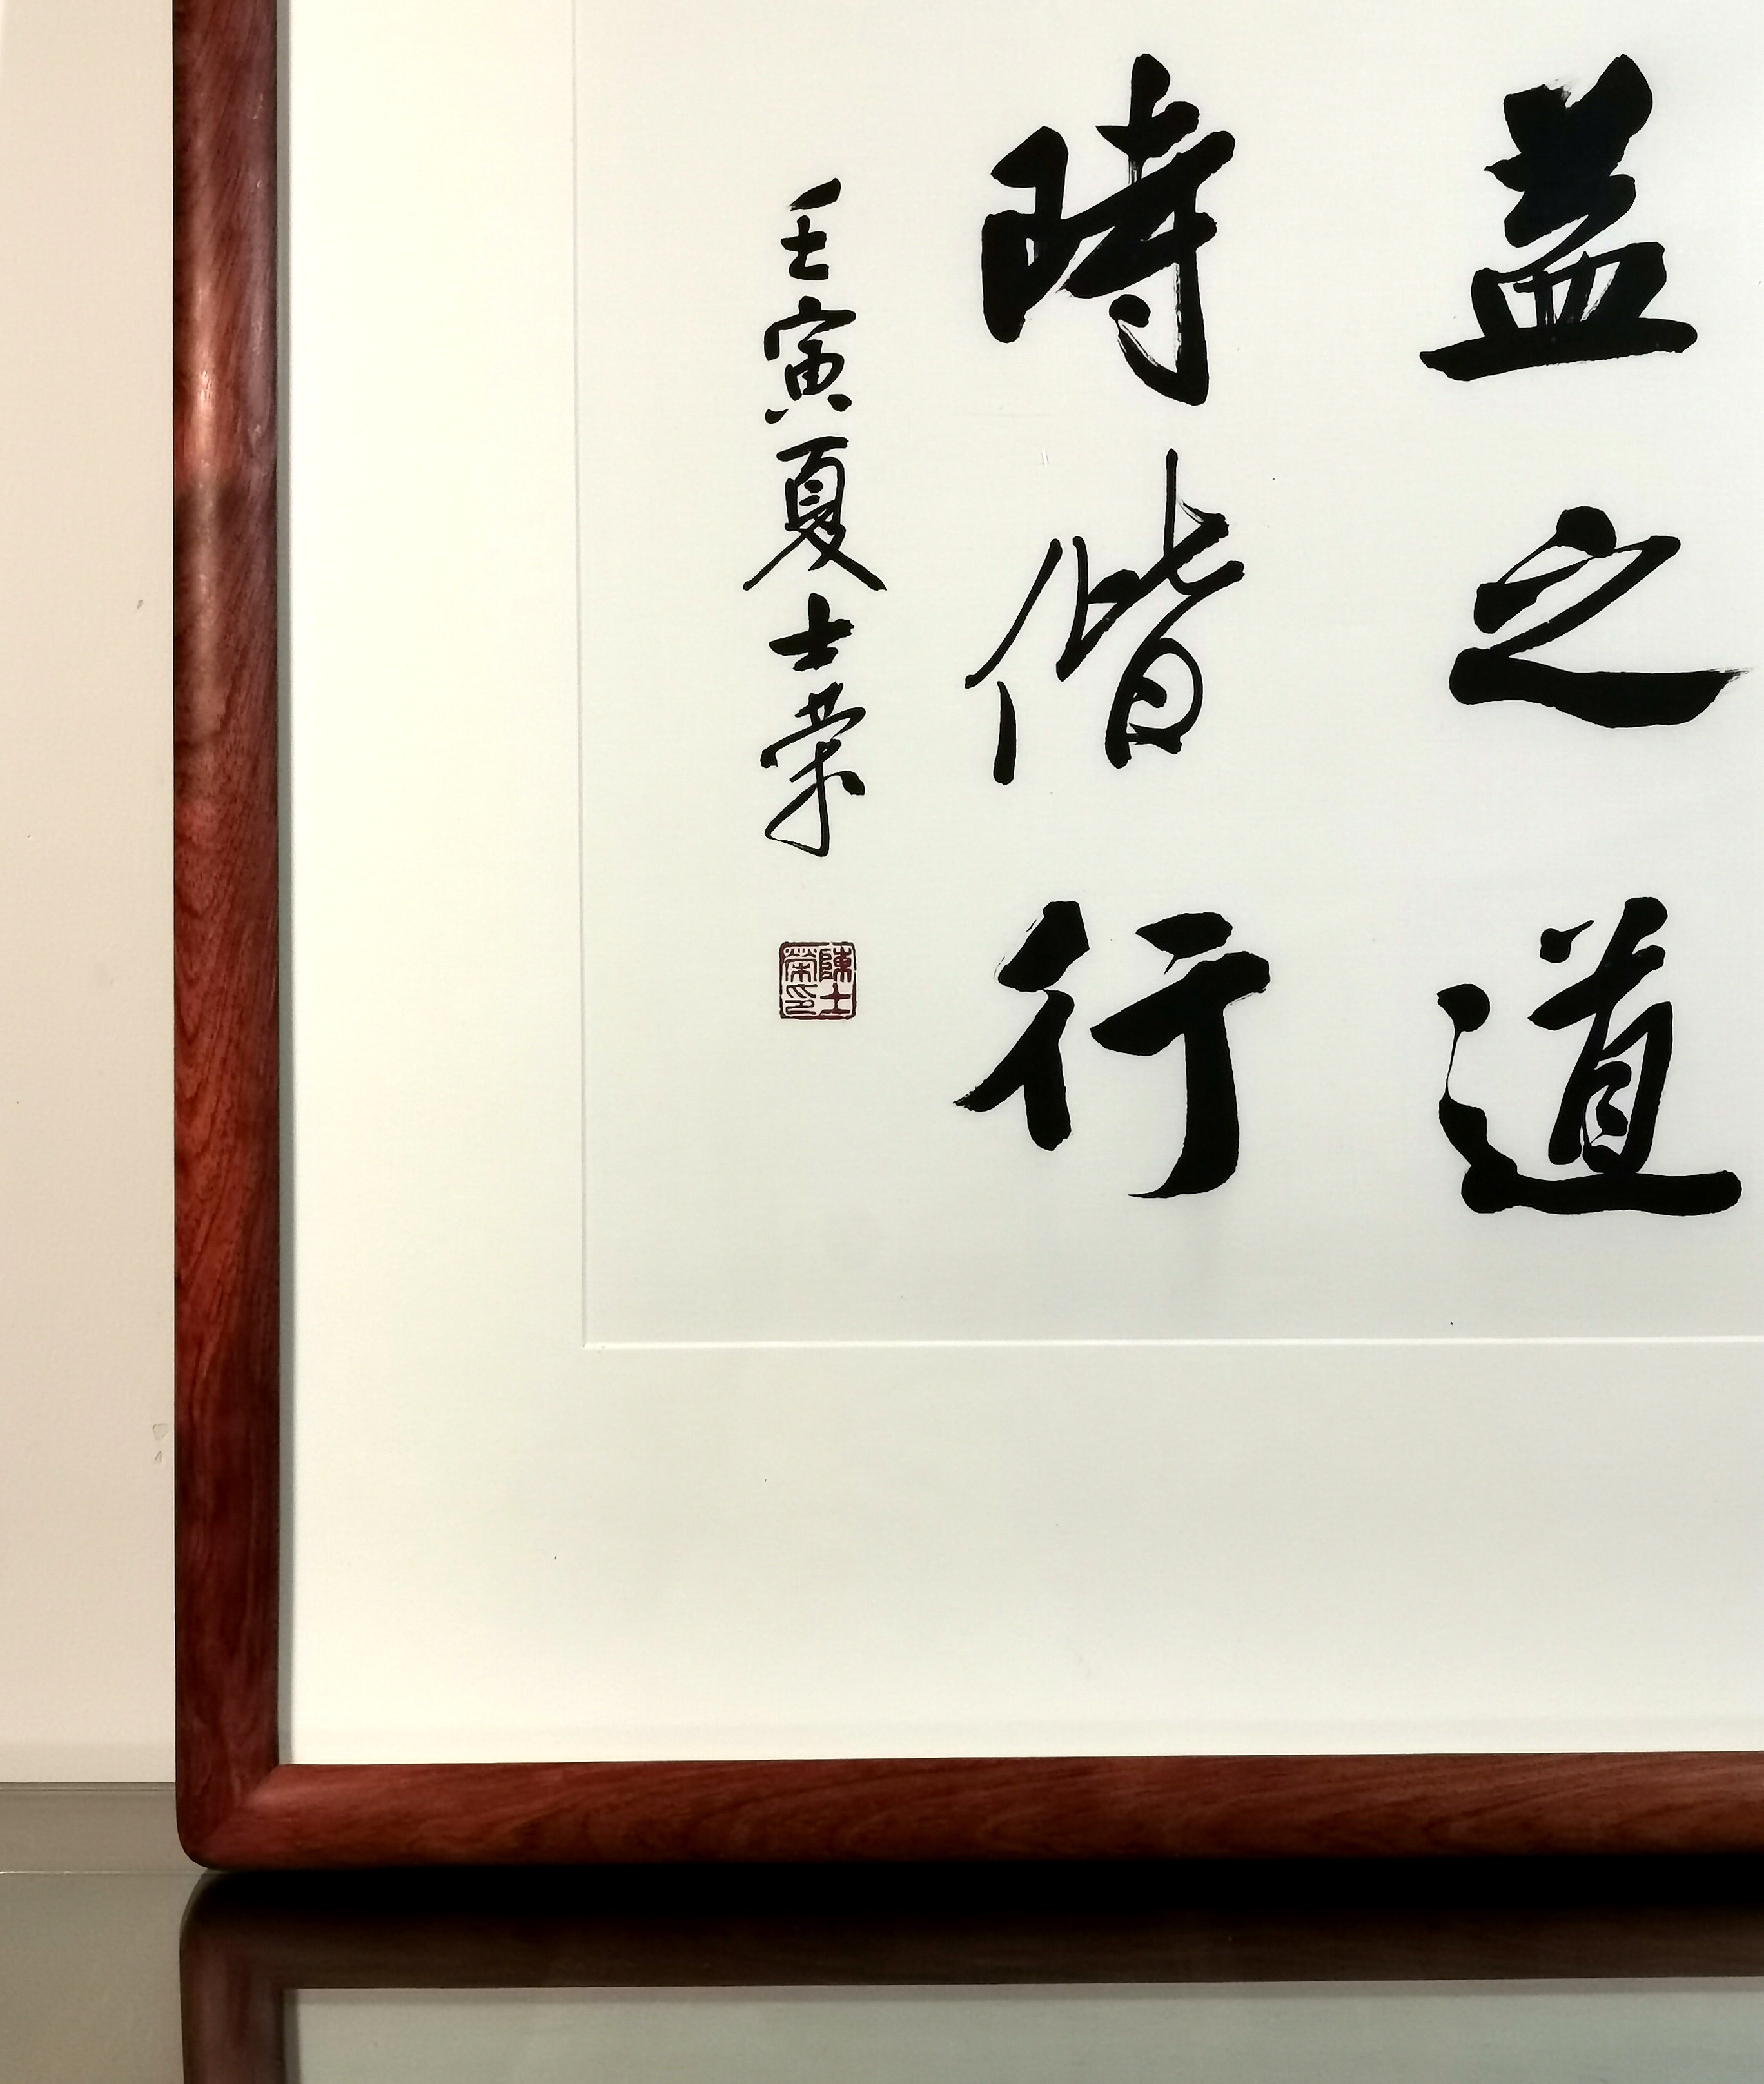 益之道
時偕行
壬寅夏士荣
陳士榮印